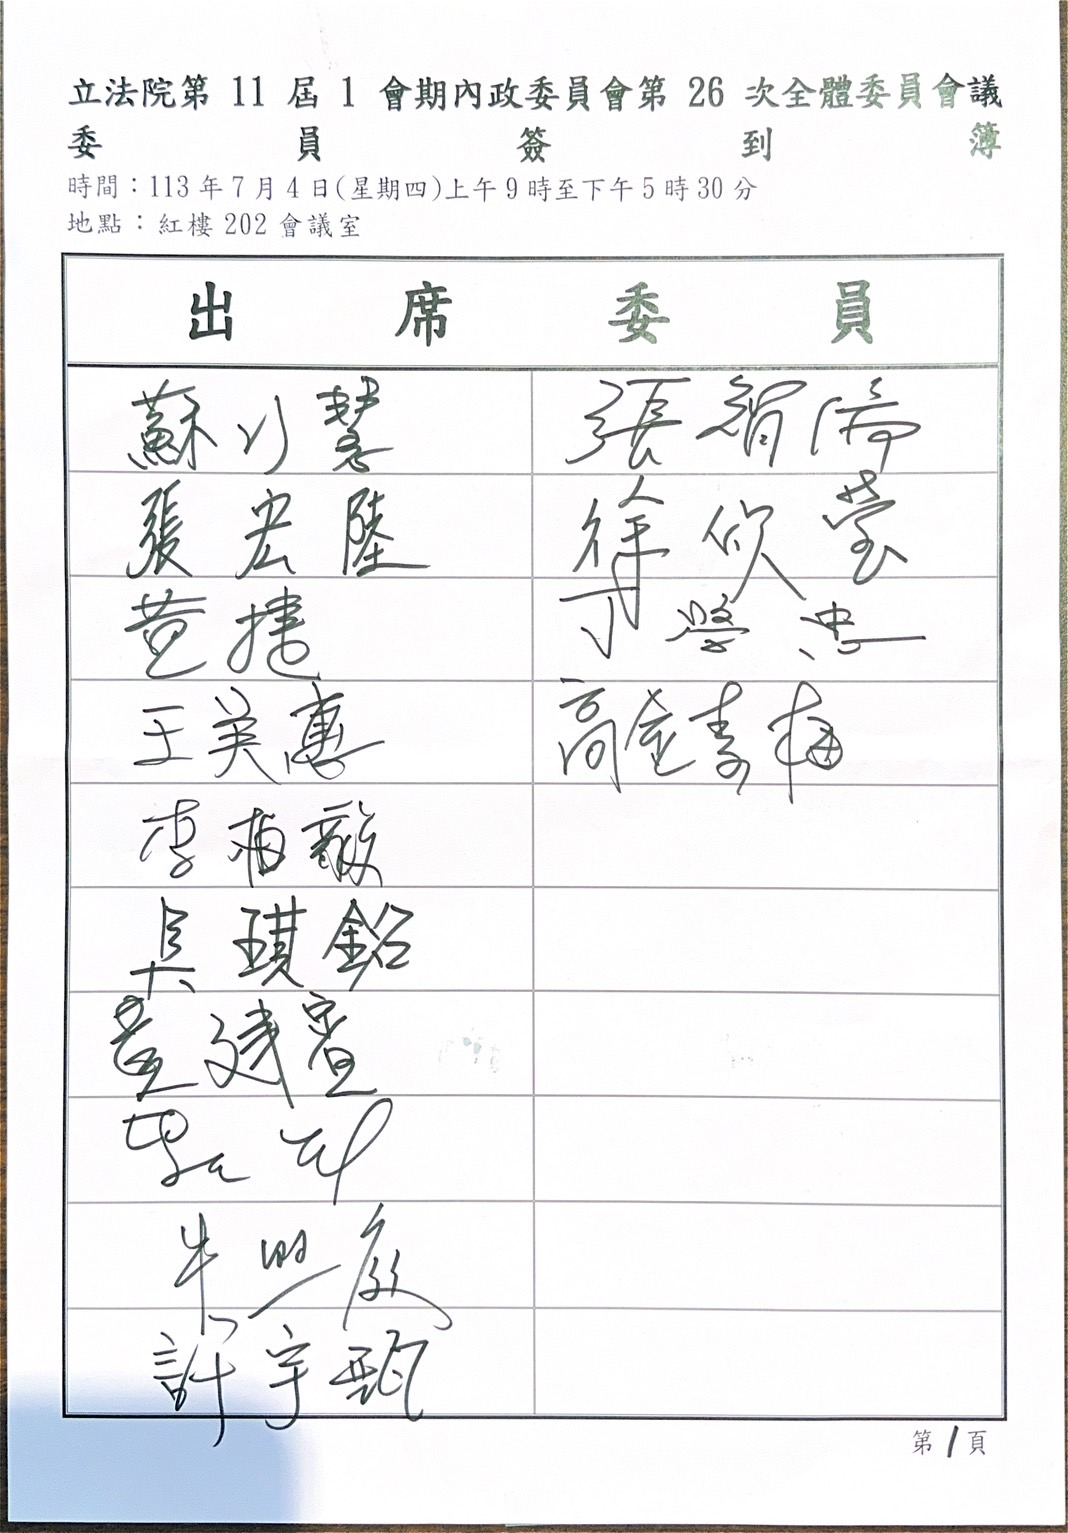 立法院第 11 屆 1 會期內政委員會第 26 次全體委員會議
委員簽到簿
時間：113 年 7 月 4 日(星期四)上午 9 時至下午 5 時 30 分
地點：紅樓 202 會議室
出席委員
蘇巧慧
張宏陸
黃捷
王美惠
李柏毅
吳琪銘
黃建賓
牛煦庭
許宇甄
張智倫
徐欣瑩
丁學忠
高金素梅
第1頁